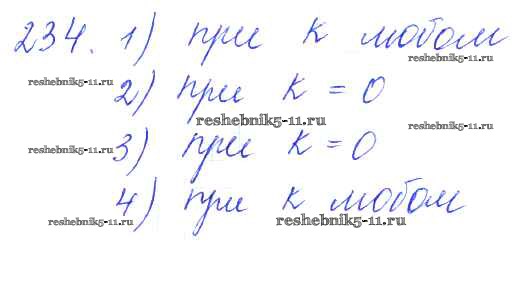 234. 1) при к любом
reshebnik5-11.ru reshebnik5-11.ru
2) при к = 0
reshebnik5-11.ru reshebnik5-11.ru
reshebnik5-11.ru 3) при к = 0
4) при к любом
reshebnik5-11.ru reshebnik5-11.ru